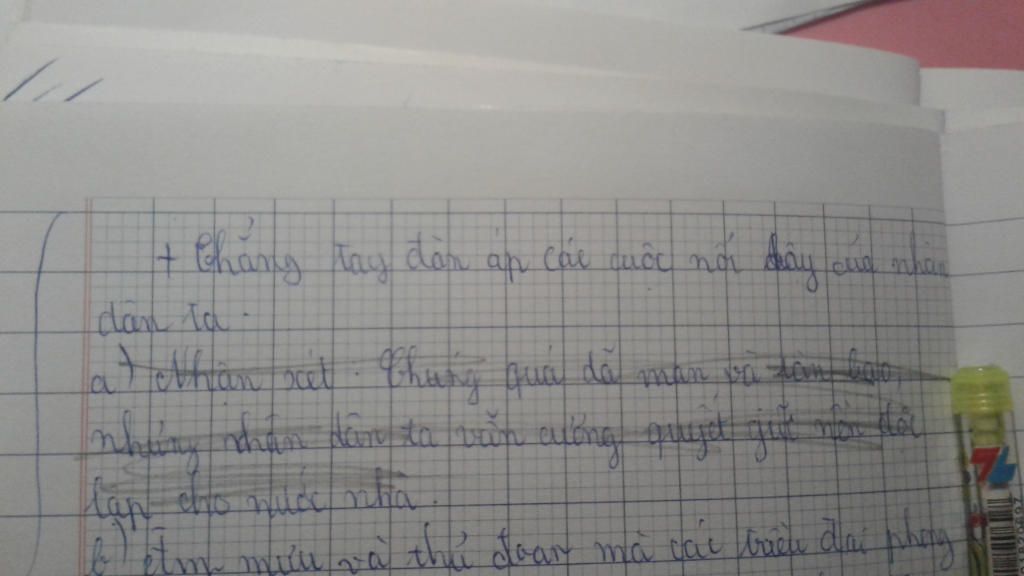 + Thẳng tay đàn áp các cuộc nổi dậy của nhân
dân ta.
a) Nhận xét: Chúng quá dã man và tàn bạo,
nhưng nhân dân ta vẫn cương quyết giữ nền độc
lập cho nước nhà.
b) Âm mưu và thủ đoạn mà các triều đại phong